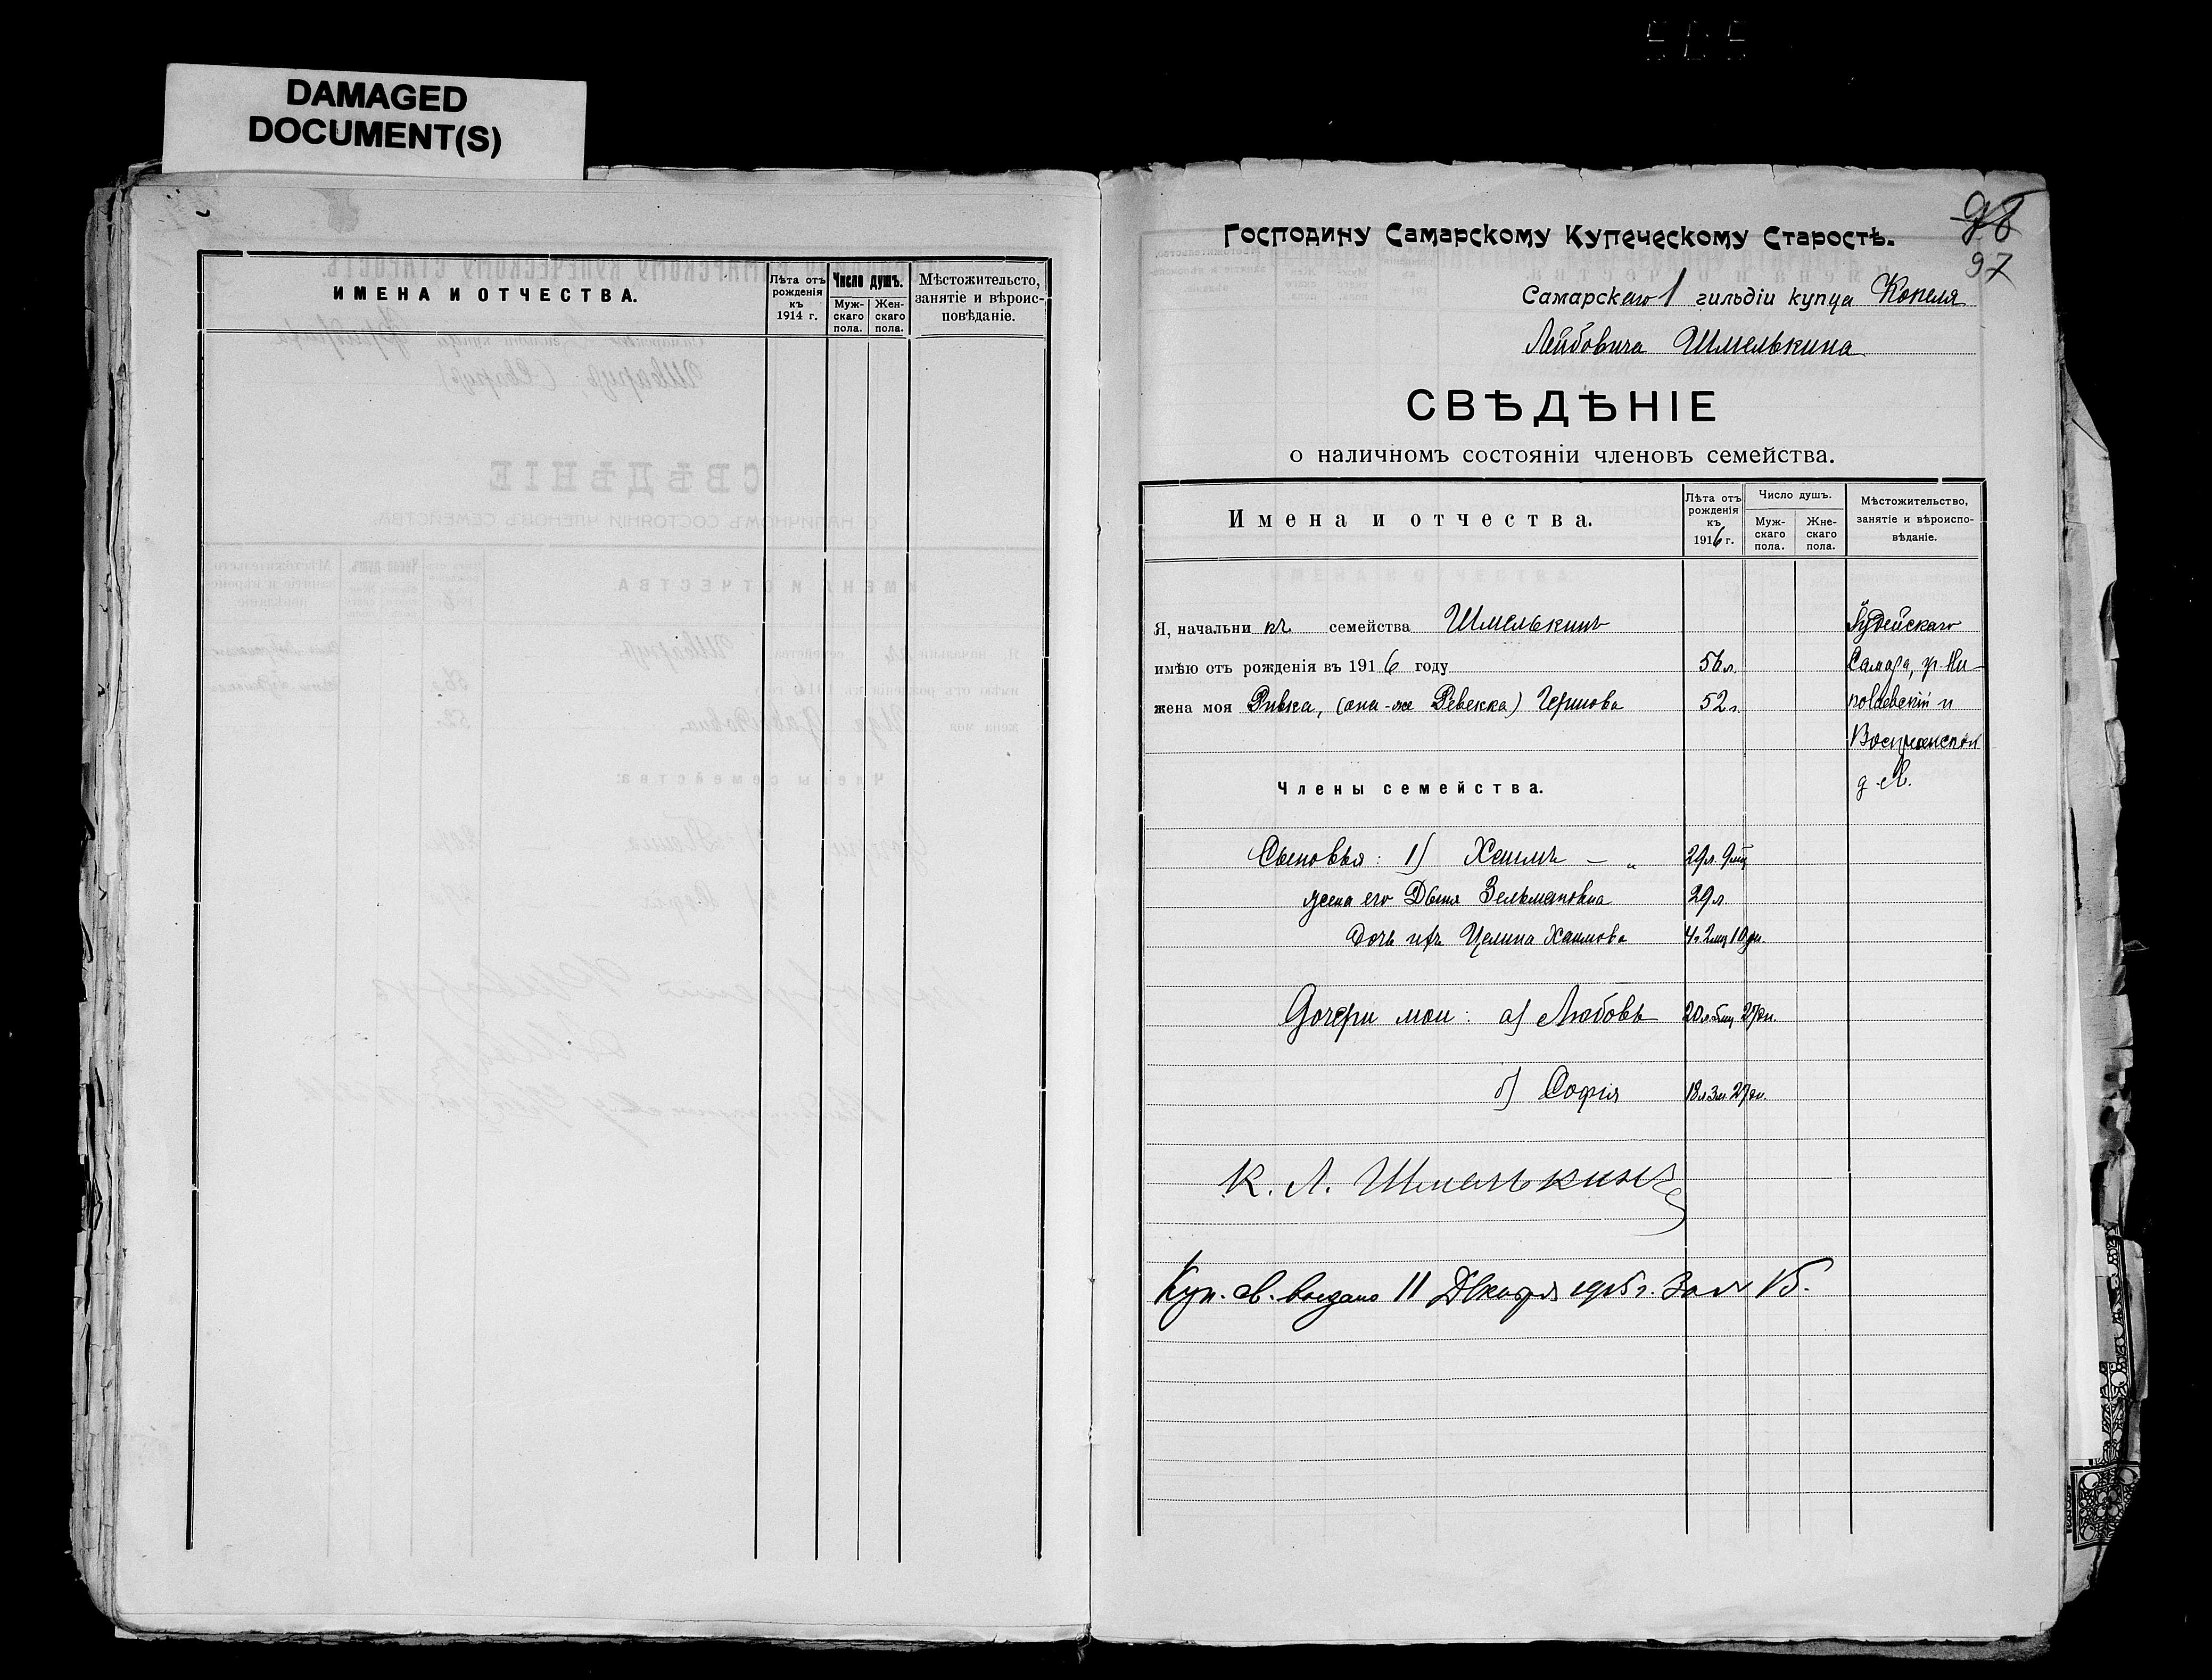 505
DAMAGED
DOCUMENT(S)
ИМЕНА И ОТЧЕСТВА.
Лѣта отъ рожденія къ 1914 г.
Число душъ.
Муж-скаго пола.
Жен-скаго пола.
Мѣстожительсто, занятіе и вѣроис-повѣданіе.
97
Господину Самарскому Купеческому Старостѣ.
Самарскаго 1 гильдіи купца Копеля
Лейбовича Шмелькина
СВѢДѢНІЕ
о наличномъ состояніи членовъ семейства.
Имена и отчества.
Лѣта отъ рожденія къ 1916 г.
Число душъ.
Муж-скаго пола.
Жне-скаго пола.
Мѣстожительство, занятіе и вѣроиспо-вѣданіе.
Я, начальникъ семейства Шмелькинъ Іудейскаго
имѣю отъ рожденія въ 1916 году 56 л. Самара, уг. Ни-
жена моя Ривка, (она-же Ревекка) Гершова 52 г. колаевской и
Воскресенской
Члены семейства. д.
Сыновья: 1) Хаимъ — „ 29 л. 9 мц
жена его Двыня Зельмановна 29 л.
дочь ихъ Целина Хаимова 4 г. 2 мц 10 дн.
Дочери мои: а) Любовь 20 л. 5 мц 27 дн.
б) Софія 18 л. 3 м. 27 дн.
К. Л. Шмелькинъ
Куп. св. выдано 11 Декабря 1915 г. За № 15.